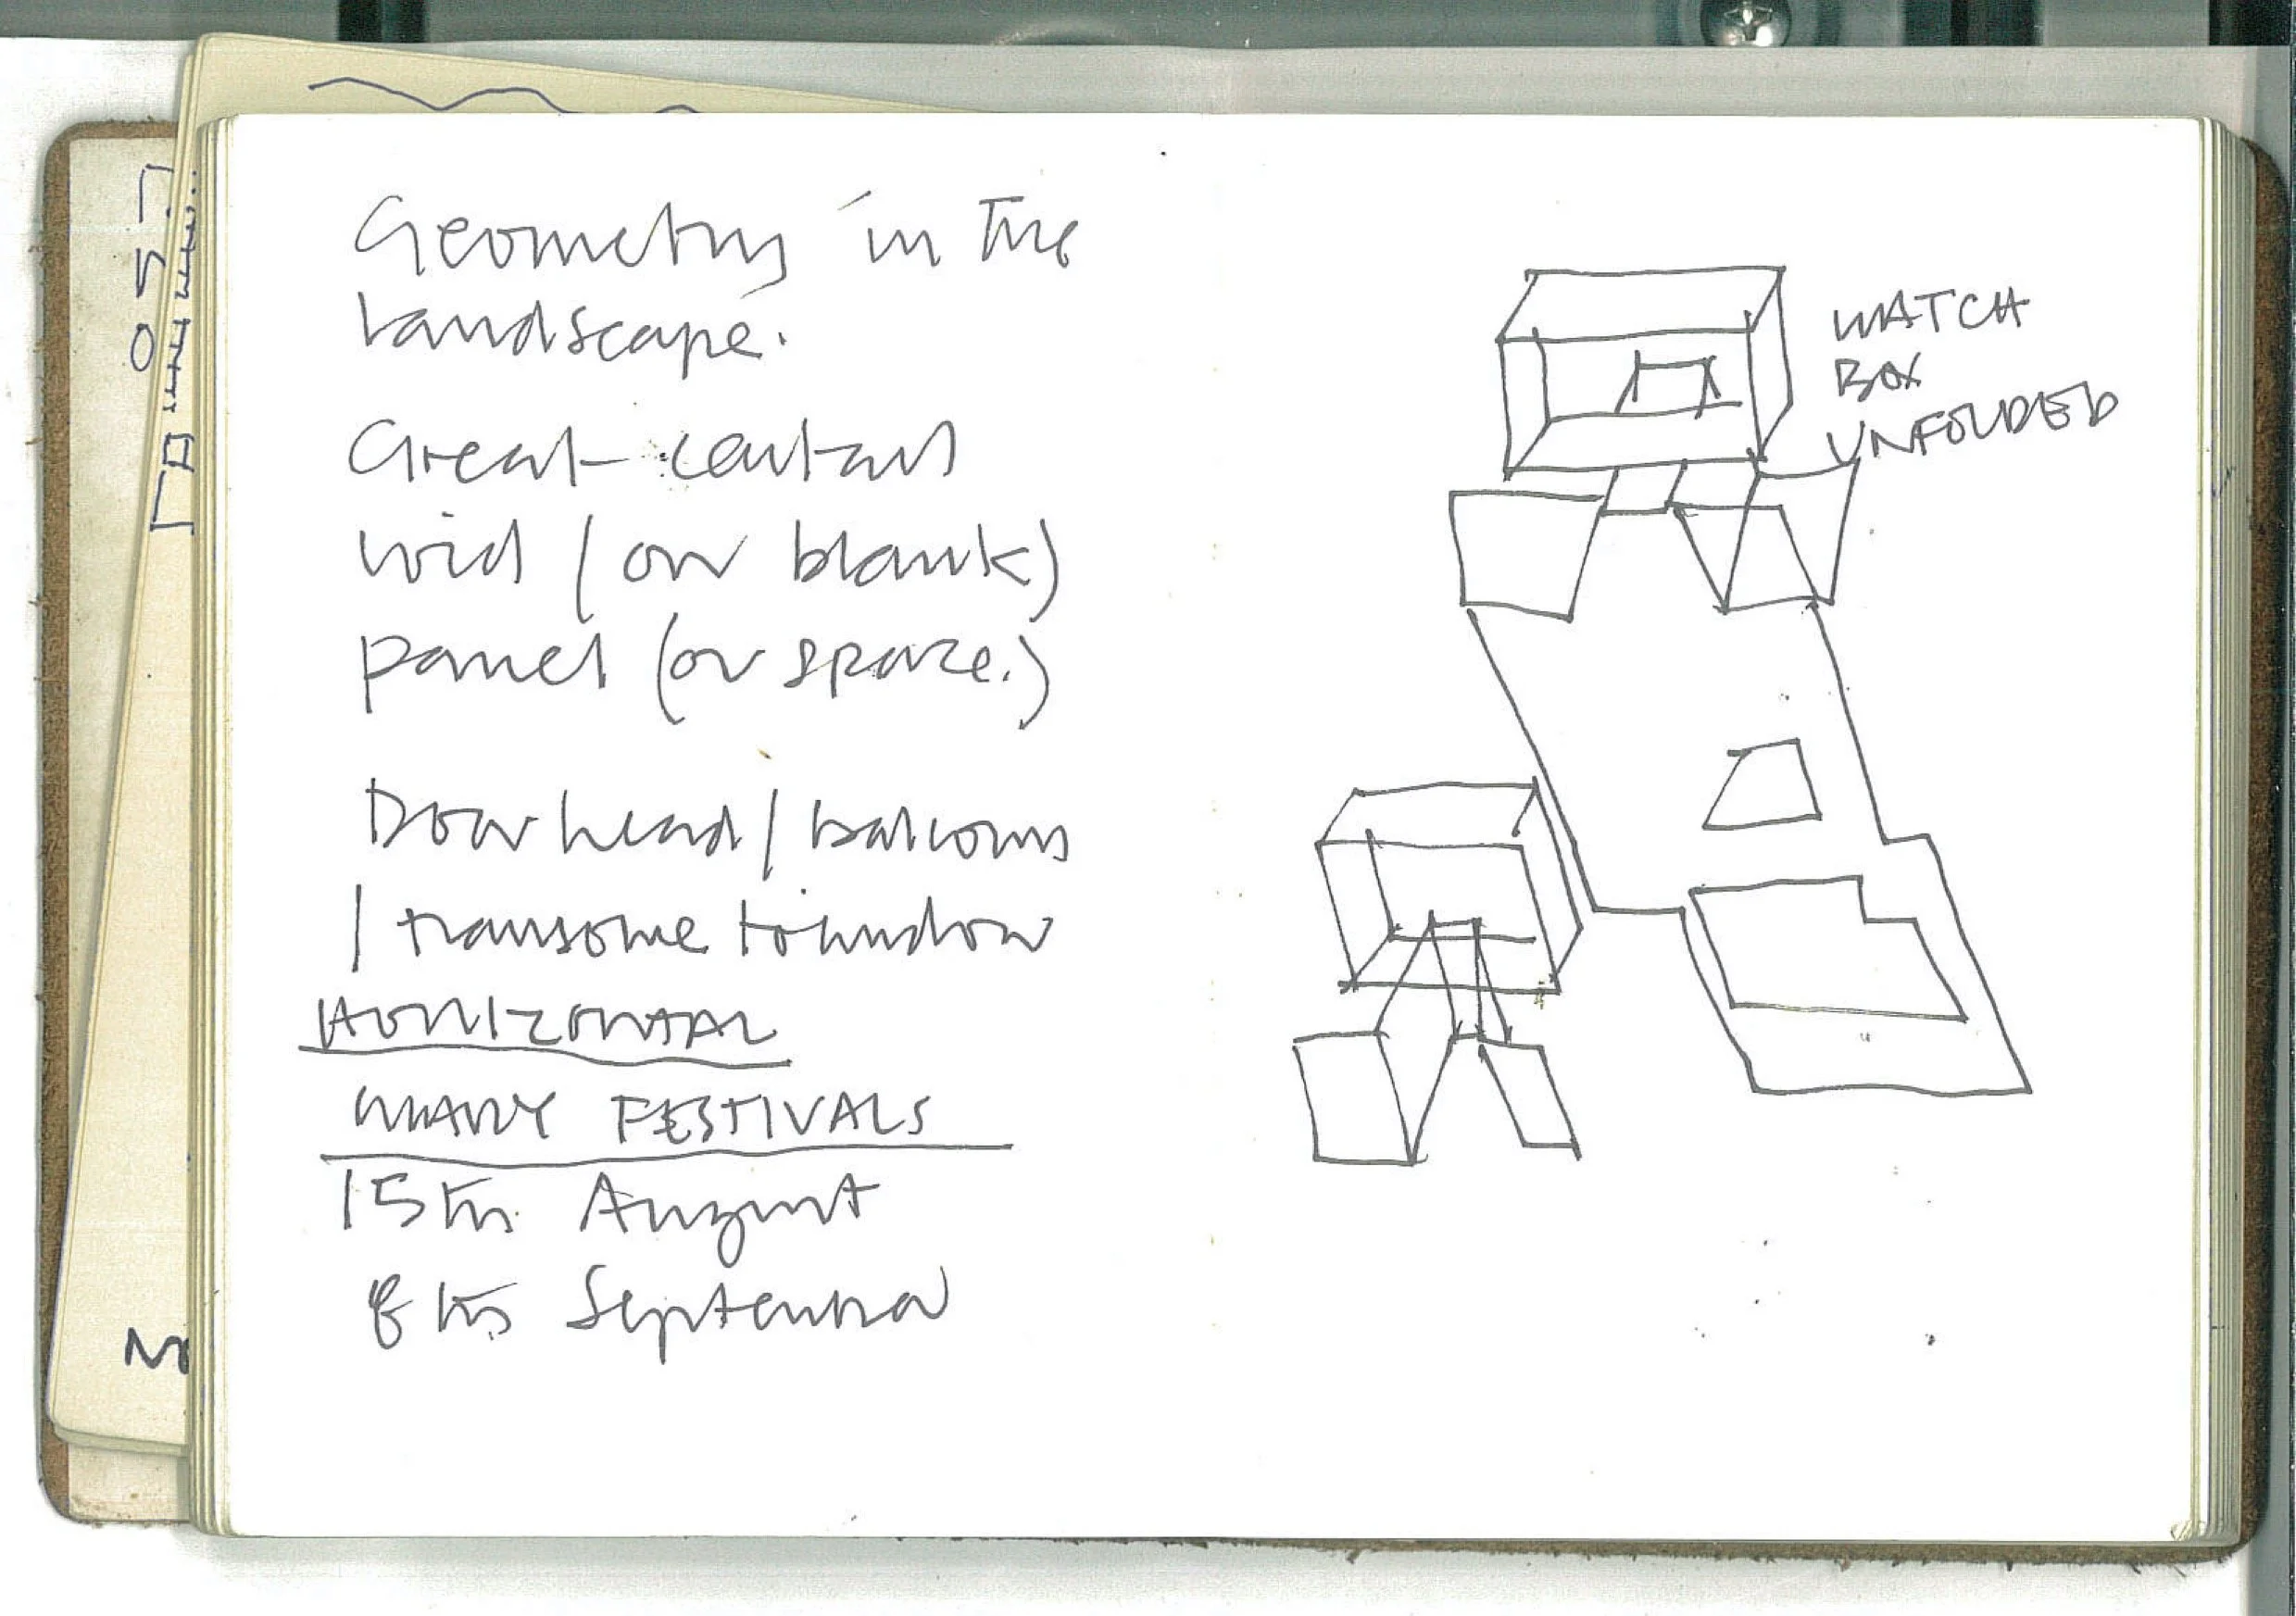 Geometry in the
Landscape.
Great central
void (or blank)
panel (or space.)
Door head / balcony
/ transome to window
HORIZONTAL
MANY FESTIVALS
15th August
8th September
WATCH
BOX
UNFOLDED
057